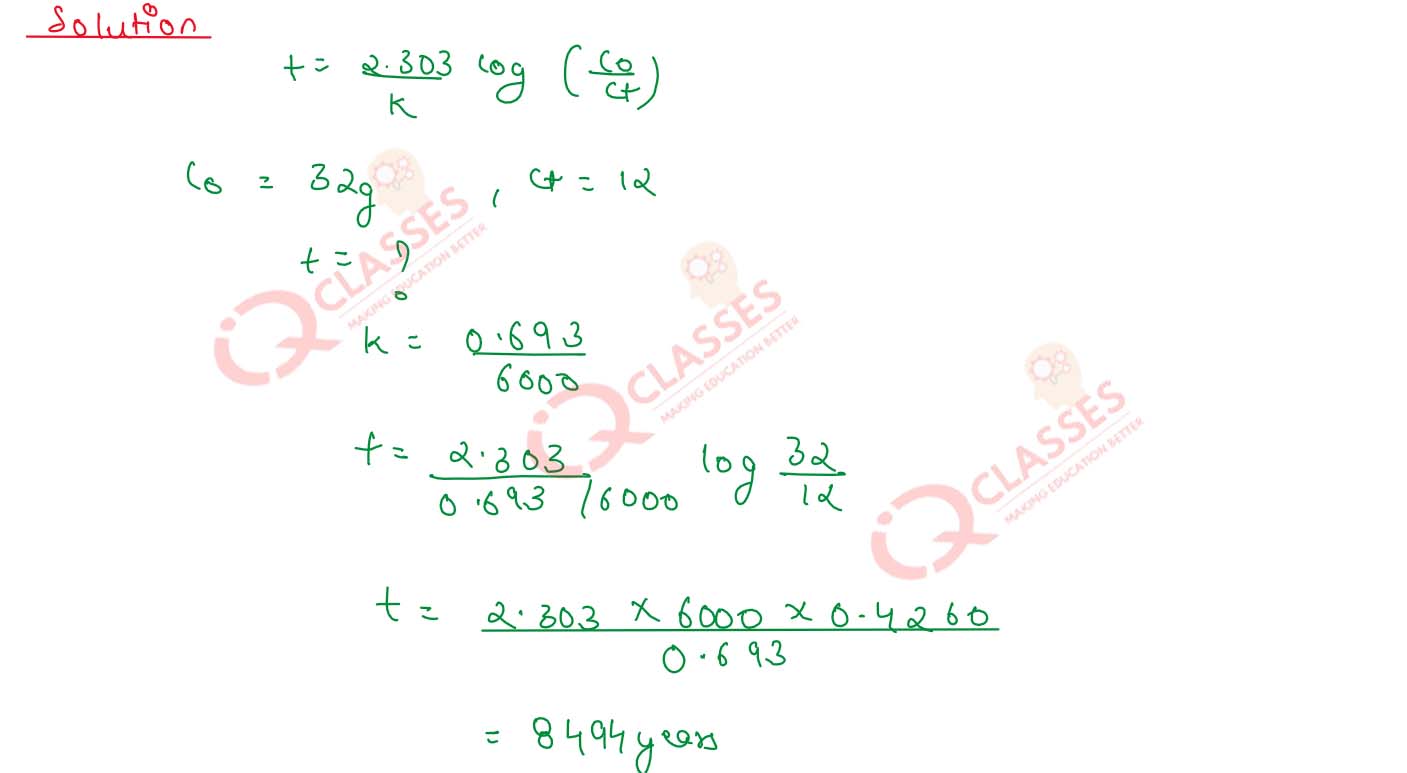 Solution
t = 2.303 / K log (Co / Ct)
Co = 32g , Ct = 12
t = ?
K = 0.693 / 6000
t = 2.303 / 0.693 / 6000 log 32 / 12
t = 2.303 × 6000 × 0.4260 / 0.693
= 8494 years
IQ CLASSES
MAKING EDUCATION BETTER
IQ CLASSES
MAKING EDUCATION BETTER
IQ CLASSES
MAKING EDUCATION BETTER